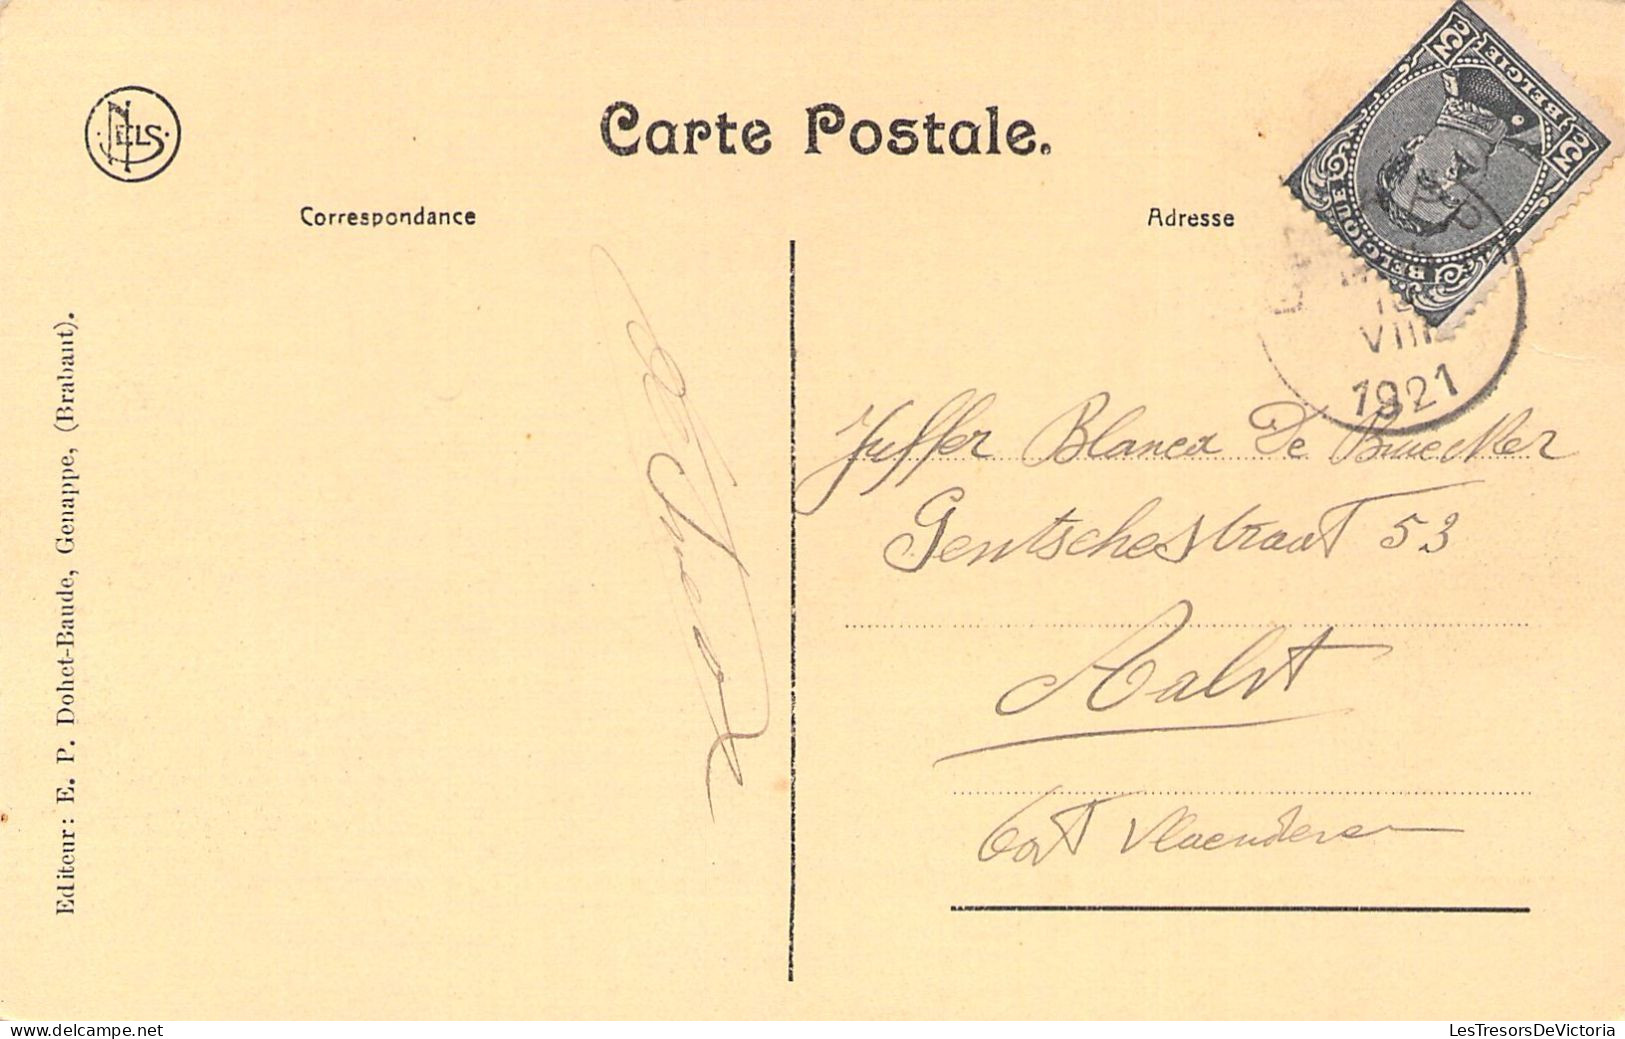 NELS
Carte Postale.
Correspondance
Adresse
3 3
BELGIQUE BELGIE
VIII
1921
Juffer Blanca De Bruecker
Gentschestraat 53
Aalst
Oost Vlaenderen
Editeur: E. P. Dohet-Baude, Genappe, (Brabant).
LesTresorsDeVictoria